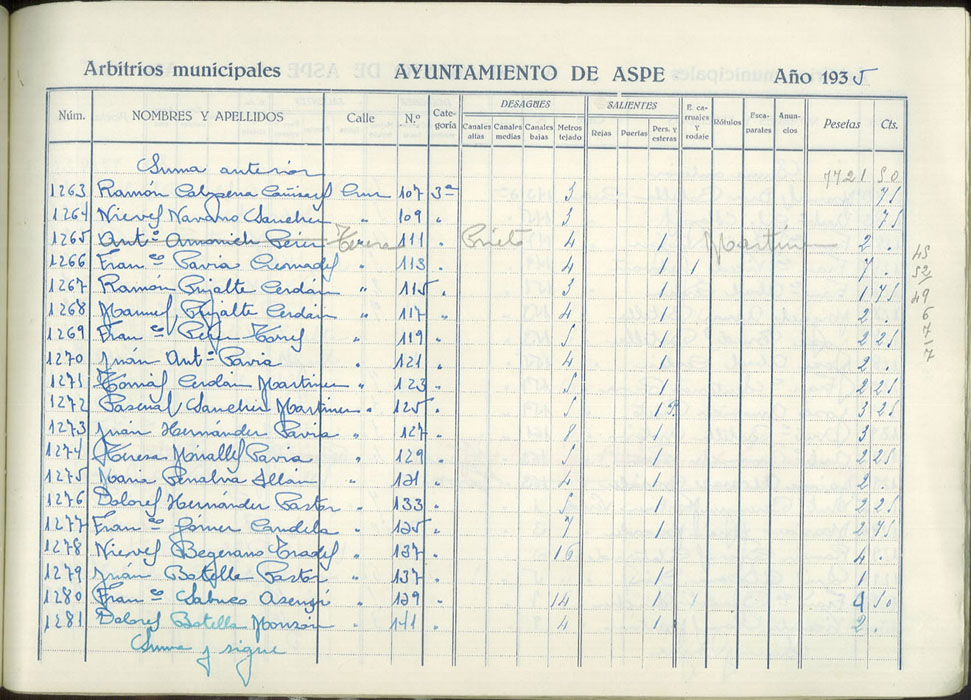 Arbitrios municipales AYUNTAMIENTO DE ASPE Año 1935
Núm. NOMBRES Y APELLIDOS Calle N.º Categoría DESAGÜES Canales altas Canales medias Canales bajas Metros tejado SALIENTES Rejas Puertas Pers. y esteras E. carruajes y rodaje Rótulos Escaparates Anuncios Pesetas Cts.
Suma anterior 7721 50
1263 Ramón Calpena Cañizes Cruz 107 3ª 3 75
1264 Nieves Navarro Sanchez " 109 " 3 75
1265 Antº Amorich Pérez Teresa 111 . Prieto 4 1 Martinez 2 .
1266 Franco Pavia Cremades " 113 . 4 1 1 7 . 45
1267 Ramón Prijalte Cerdán " 115 . 3 1 1 75 52
1268 Manuel Prijalte Cerdán " 117 " 4 1 2 . 49
1269 Franco Pérez Torres " 119 . 5 1 2 25 6
1270 Juán Antº Pavia " 121 . 4 2 . 7
1271 Tomás Cerdán Martinez " 123 . 5 1 2 25 7
1272 Pascual Sanchez Martinez " 125 . 5 1 3 25
1273 Juán Hernández Pavia " 127 " 8 1 3 .
1274 Teresa Miralles Pavia " 129 " 5 1 2 25
1275 Maria Penalva Allán " 131 " 4 1 2 .
1276 Dolores Hernández Pastor " 133 " 5 1 2 25
1277 Franco Gómez Candela " 135 " 7 1 2 75
1278 Nieves Begerano Prades " 137 " 16 4 .
1279 Juán Botella Pastor " 137 . 1 1 .
1280 Franco Sabuco Asensi " 139 " 14 1 4 50
1281 Dolores Botella Monzón " 141 " 4 1 2 .
Suma y sigue